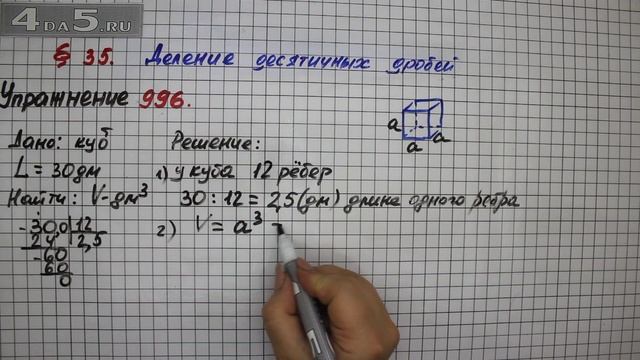 4DA5.RU
§ 35. Деление десятичных дробей
Упражнение 996.
Дано: куб
L = 30 дм
Найти: V-дм³
-30,0|12
24 2,5
-60
60
0
Решение:
1) У куба 12 рёбер
30 : 12 = 2,5 (дм) длина одного ребра
2) V = a³ =
a
a
a